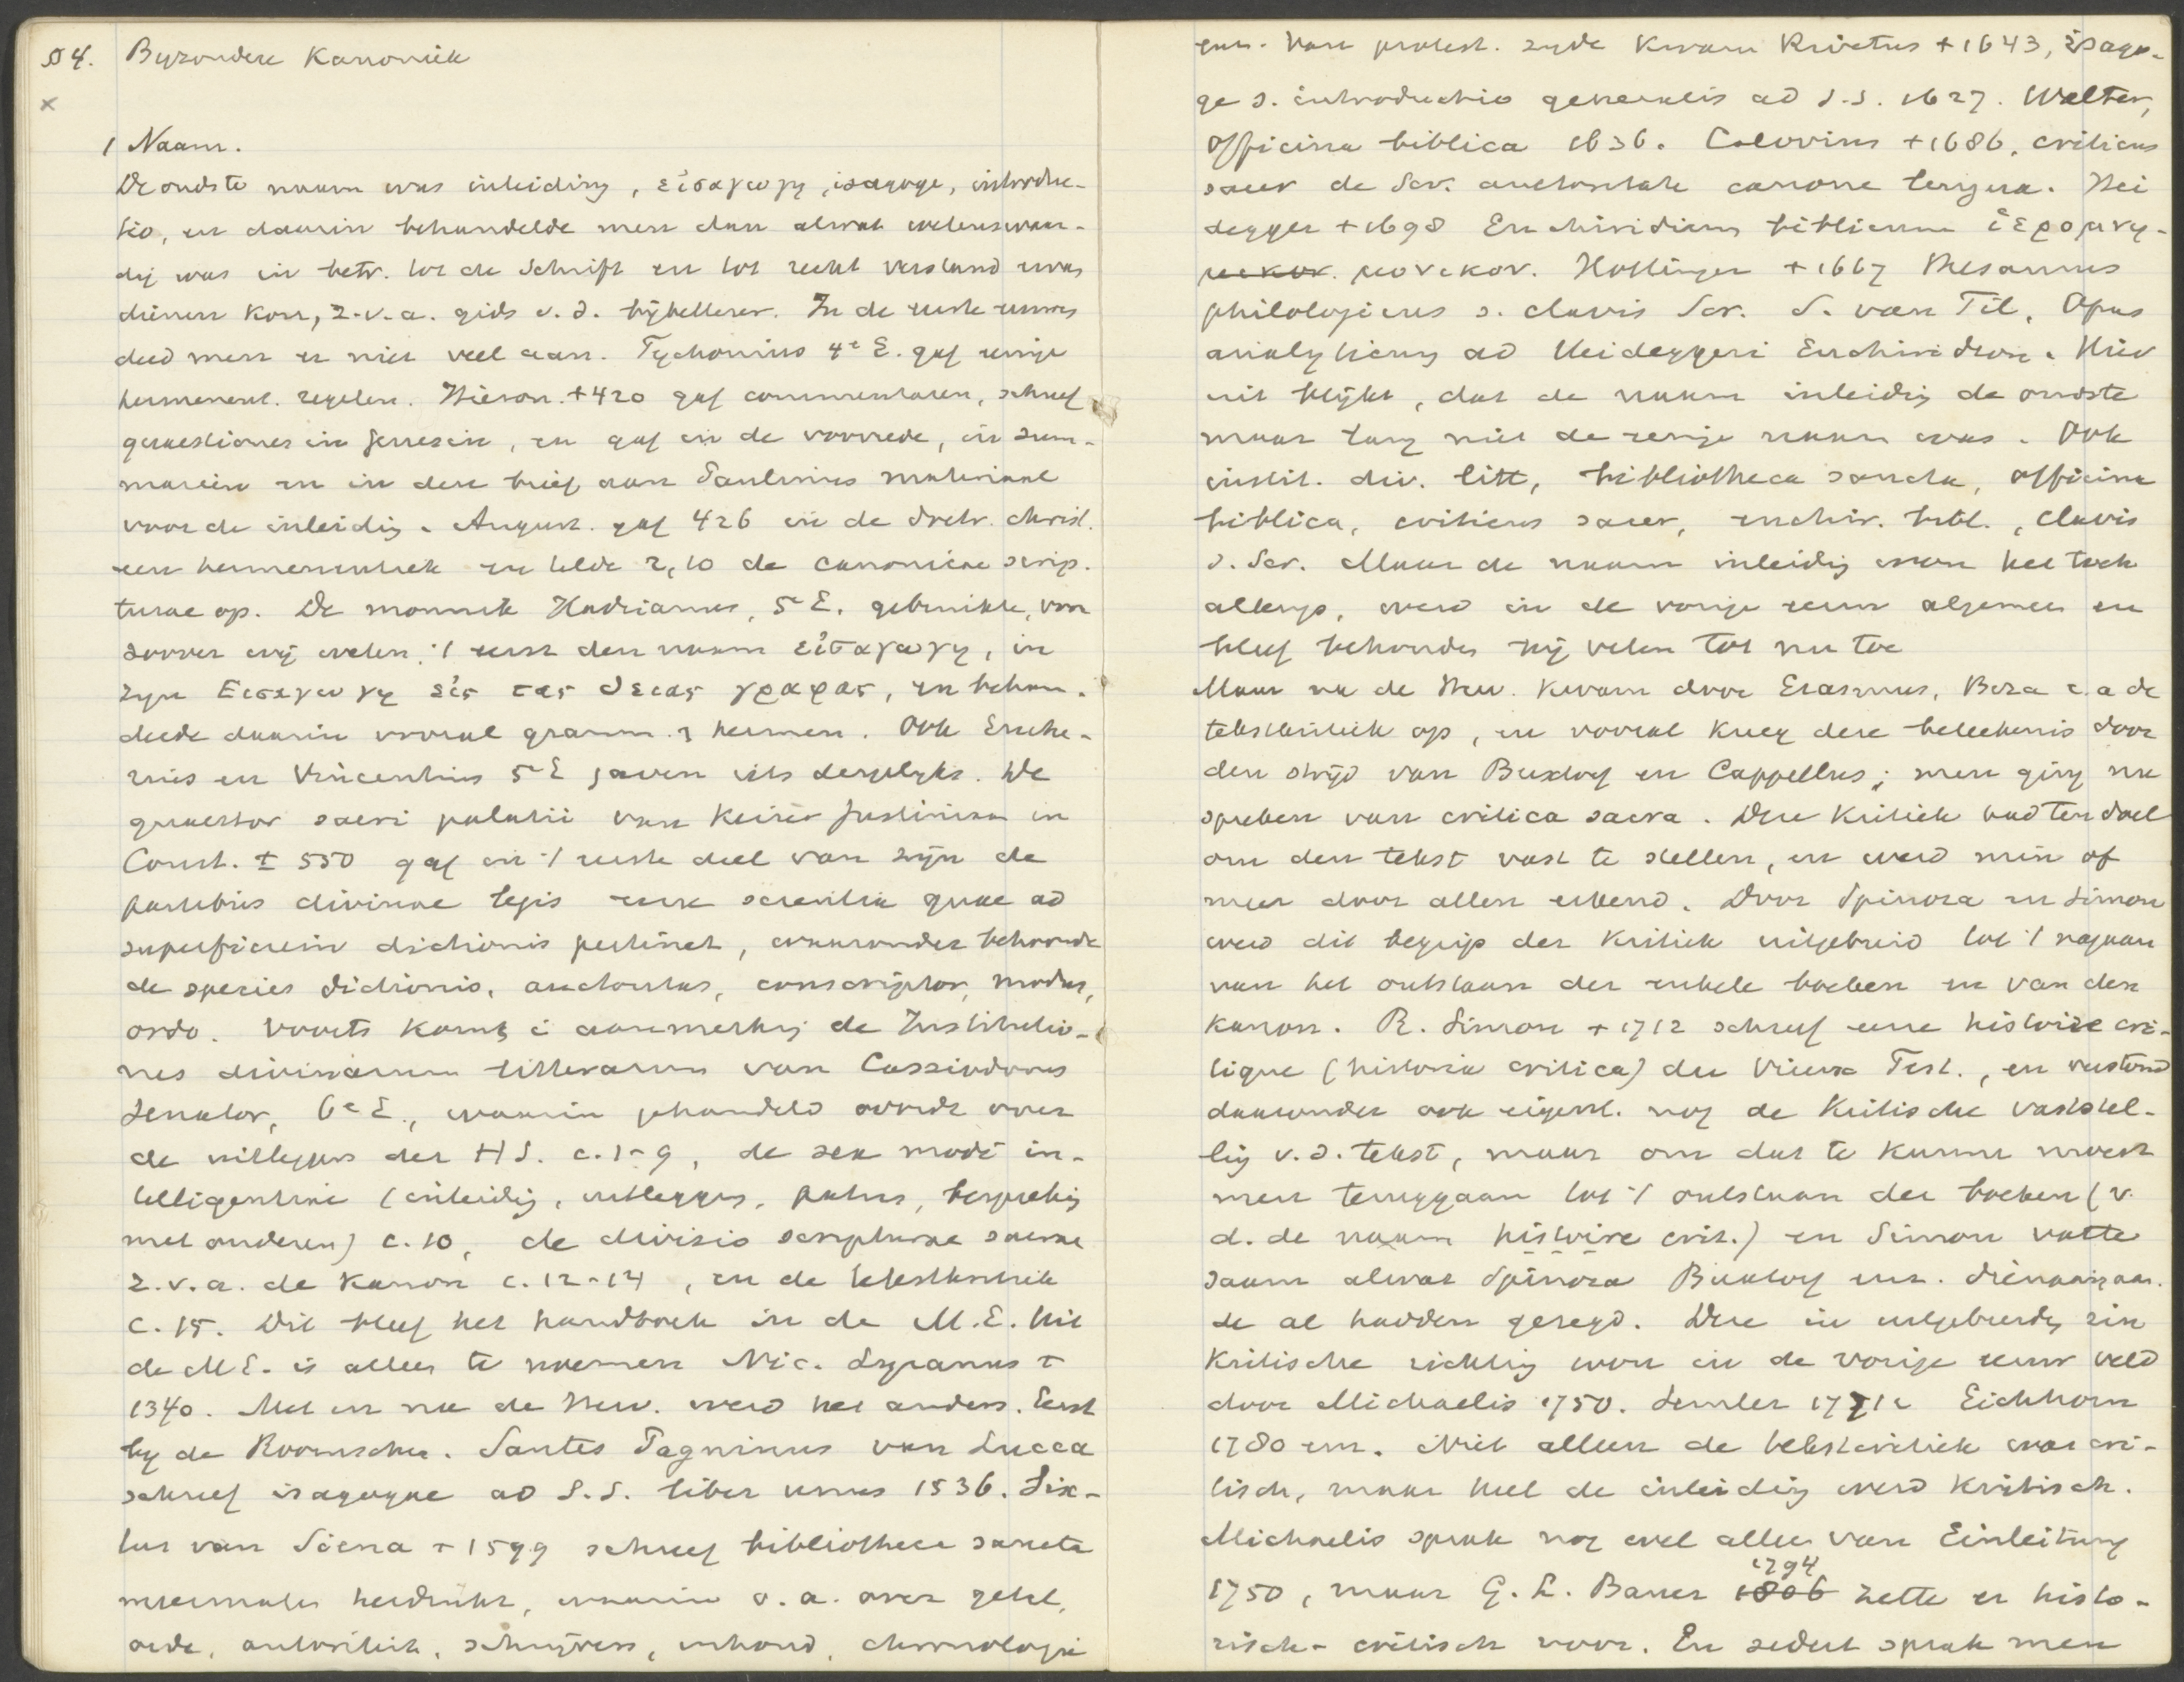 § 4. Byzondere Kanoniek
×
1 Naam.
De oudste naam was inleiding, εἰσαγωγη, isagoge, introduc-
tio, en daarin behandelde men dan alwat wetenswaar-
dig was in betr. tot de Schrift en tot recht verstand ervan
dienen kon, z.v.a. gids v.d. bijbellezer. In de eerste eeuwen
deed men er niet veel aan. Tychonius 4e E. gaf eenige
hermeneut. regelen. Hieron. +420 gaf commentaren, schreef
quaestiones in genesin, en gaf in de voorrede, in sum-
marein en in den brief aan Paulinus materiaal
voor de inleidig. August. gaf 426 in de doctr. christ.
een hermeneutiek en telde 2,10 de canonicae scrip.
turae op. De monnik Hadrianus, 5e E. gebruikte, voor
zoover wij weten, 't eerst den naam εἰσαγωγη, in
zijn Εισαγωγη εἰς τας θειας γραφας, en behan-
delde daarin vooral gramm. & hermen. Ook Euche-
rius en Vincentius 5e E gaven iets dergelyks. De
quaestor sacri palatii van Keizer Justinian in
Const. ± 550 gaf in 't eerste deel van zijn de
partibus divinae legis eene scientia quae ad
superficiem dictionis pertinet, waaronder behoorde
de species dictionis, auctoritas, conscriptor, modus,
ordo. Voorts komt i aanmerking de Institutio-
nes divinarum litterarum van Cassiodorus
Senator, 6e E., waarin gehandeld wordt over
de uitleggers der H S. c. 1-9, de sex modi in-
telligentiae (inleidig, uitleggers, patres, besprekig
met anderen) c. 10, de divisio scripturae sacrae
z.v.a. de Kanon c. 12-14, en de tekstkritiek
c. 15. Dit bleef het handboek in de M.E. Uit
de M E. is alleen te noemen Nic. Lyranus ±
1340. Met en na de Herv. werd het anders. Eerst
by de Roomschen. Santes Pagninus van Lucca
schreef isagogae ad S.S. liber unus 1536. Six-
tus van Siena + 1599 schreef bibliotheca sancta
meermalen herdrukt, waarin o.a. over getal,
orde, autoriteit, schrijvers, inhoud, chronologie
enz. Van protest. zyde kwam Rivetus + 1643, isago-
ge s. introductio generalis ad S.S. 1627. Walter,
officina biblica 1636. Calovius + 1686, criticus
sacer de Scr. auctoritate canone lengua. Hei
degger + 1698 Enchiridion biblicum ἱερομνη-
μονικον. Hottinger + 1667 Thesaurus
philologicus s. clavis Scr. S. van Til, Opus
analyticum ad Heideggeri Enchiridion. Hier
uit blijkt, dat de naam inleidig de oudste
maar lang niet de eenige naam was. Ook
instit. div. litt, bibliotheca sancta, officina
biblica, criticus sacer, enchir. bibl., clavis
s. Scr. Maar de naam inleidig won het toch
allengs, werd in de vorige eeuw algemeen en
bleef behouden bij velen tot nu toe
Maar na de Herv. kwam door Erasmus, Beza e.a de
tekstkritiek op, en vooral kreeg deze beteekenis door
den strijd van Buxtorf en Cappellus; men ging nu
spreken van critica sacra. Deze Kritiek had ten doel
om den tekst vast te stellen, en werd min of
meer door allen erkend. Door Spinoza en Simon
werd dit begrip der Kritiek uitgebreid tot 't nagaan
van het ontstaan der enkele boeken en van den
Kanon. R. Simon + 1712 schreef eene histoire cri-
tique (historia critica) du Vieux Test., en verstond
daaronder ook eigenl. nog de Kritische vaststel-
lig v.d. tekst, maar om dat te kunnen moest
men teruggaan tot 't ontstaan der boeken (v.
d. de naam histoire crit.) en Simon vatte
saam alwat Spinoza Buxtorf enz. dienaangaan.
de al hadden gezegd. Deze in uitgebreiden zin
Kritische richting won in de vorige eeuw veld
door Michaelis 1750. Semler 1771 Eichhorn
1780 enz. Niet alleen de tekstcritiek was cri-
tisch, maar heel de inleiding werd Kritisch.
Michaelis sprak nog wel alleen van Einleitung
1794
1750, maar G. L. Bauer 1806 zette er histo-
risch-critisch voor. En sedert sprak men